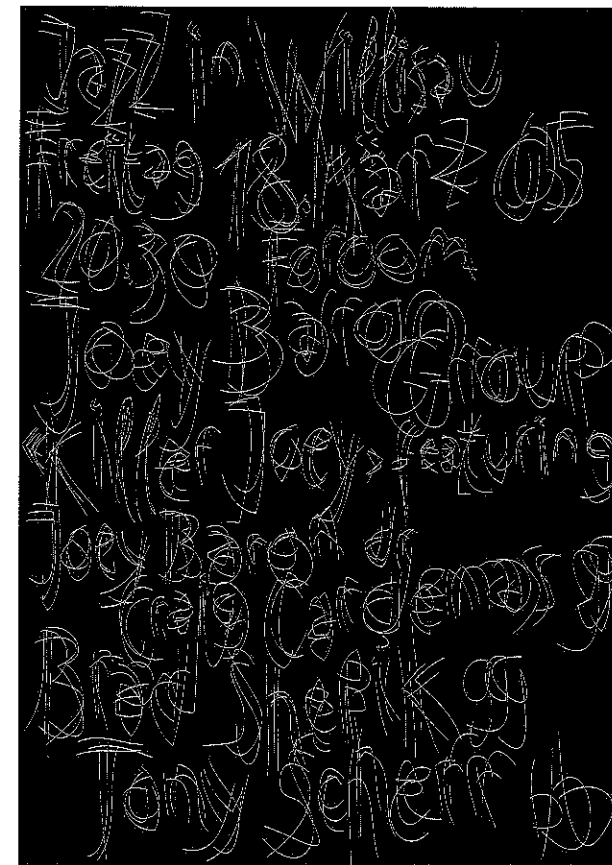 Jazz in Willisau
Freitag 18. März 05
20.30 Foroom
Joey Baron Group
«Killer Joey» featuring
Joey Baron dr
Craig Cardenas g
Brad Shepik g
Tony Scherr b